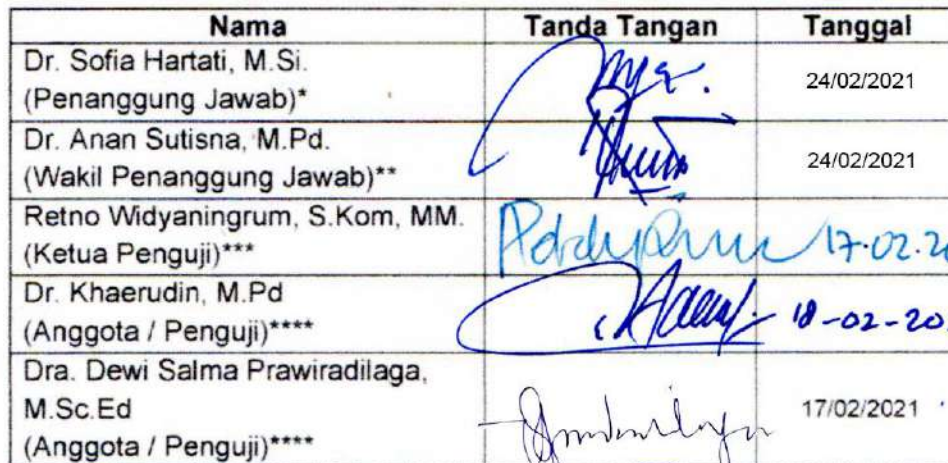 Nama Tanda Tangan Tanggal
Dr. Sofia Hartati, M.Si.
(Penanggung Jawab)* 24/02/2021
Dr. Anan Sutisna, M.Pd.
(Wakil Penanggung Jawab)** 24/02/2021
Retno Widyaningrum, S.Kom, MM.
(Ketua Penguji)*** 17.02.20
Dr. Khaerudin, M.Pd
(Anggota / Penguji)**** 18-02-20
Dra. Dewi Salma Prawiradilaga,
M.Sc.Ed 17/02/2021
(Anggota / Penguji)****